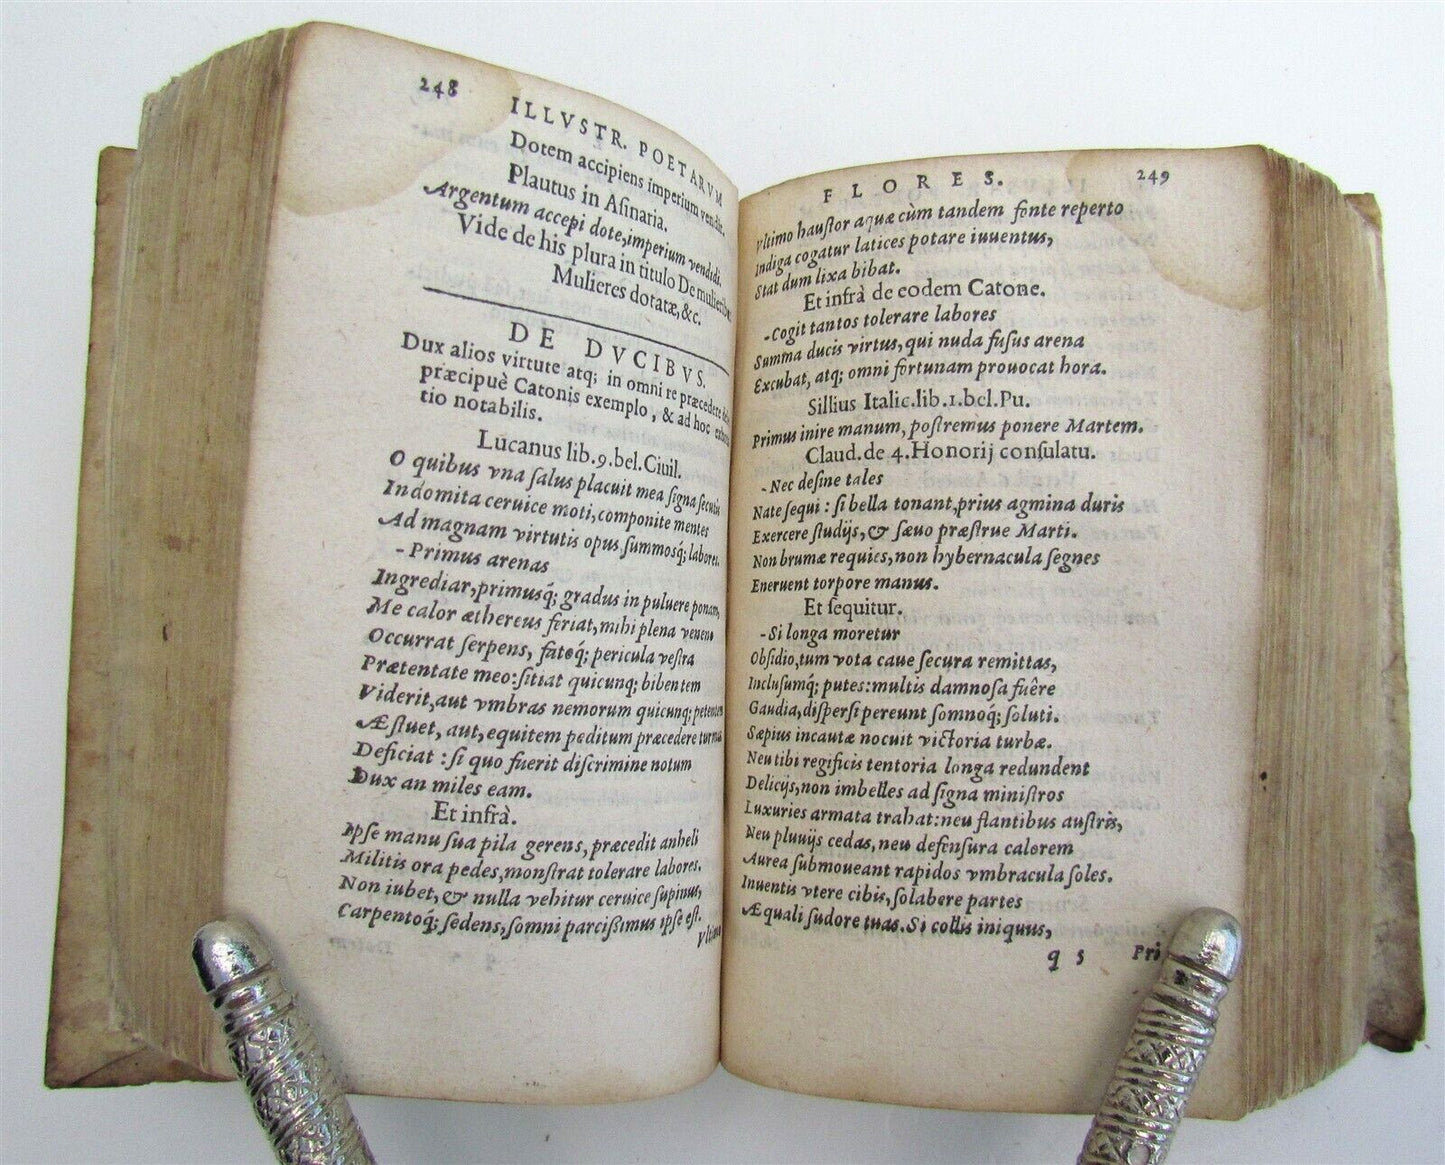 248
ILLVSTR. POETARVM
Dotem accipiens imperium vendit.
Plautus in Aſinaria.
Argentum accepi dote,imperium vendidi.
Vide de his plura in titulo De
Mulieres dotatæ,&c.
DE DVCIBVS.
Dux alios virtute atq; in omni re præcedere
præcipuè Catonis exemplo, & ad hoc
tio notabilis.
Lucanus lib.9.bel.Ciuil.
O quibus vna ſalus placuit mea ſigna ſecutis
Indomita ceruice moti,componite mentes
Ad magnam virtutis opus ſummosq́; labores.
-Primus arenas
Ingrediar,primusq́; gradus in puluere ponam,
Me calor æthereus feriat,mihi plena veneno
Occurrat ſerpens, fatoq́; pericula veſtra
Prætentate meo:ſitiat quicunq; bibentem
Viderit,aut vmbras nemorum quicunq; petentem
Æſtuet, aut,equitem peditum præcedere turmas
Deficiat : ſi quo fuerit diſcrimine notum
Dux an miles eam.
Et infrà.
Ipſe manu ſua pila gerens, præcedit anheli
Militis ora pedes,monſtrat tolerare labores.
Non iubet,& nulla vehitur ceruice ſupinus,
Carpentoq́; ſedens,ſomni parciſſimus ipſe eſt.
Vltimo
249
FLORES.
Vltimo hauſtor aquæ cùm tandem fonte reperto
Indiga cogatur latices potare iuuentus,
Stat dum lixa bibat.
Et infrà de eodem Catone.
-Cogit tantos tolerare labores
Summa ducis virtus,qui nuda fuſus arena
Excubat, atq; omni fortunam prouocat hora.
Sillius Italic.lib.1.bel.Pu.
Primus inire manum, poſtremus ponere Martem.
Claud.de 4.Honorij conſulatu.
-Nec deſine tales
Nate ſequi : ſi bella tonant,prius agmina duris
Exercere ſtudijs,& ſæuo præſtrue Marti.
Non brumæ requies,non hybernacula ſegnes
Eneruent torpore manus.
Et ſequitur.
-Si longa moretur
Obſidio,tum vota caue ſecura remittas,
Incluſumq́; putes:multis damnoſa fuêre
Gaudia,diſperſi pereunt ſomnoq́; ſoluti.
Sæpius incautæ nocuit victoria turbæ.
Neu tibi regificis tentoria longa redundent
Delicijs,non imbelles ad ſigna miniſtros
Luxuries armata trahat:neu flantibus auſtris,
Neu pluuijs cedas,neu defenſura calorem
Aurea ſubmoueant rapidos vmbracula ſoles.
Inuentis vtere cibis,ſolabere partes
Æquali ſudore tuas.Si collis iniquus,
q 5 Pri